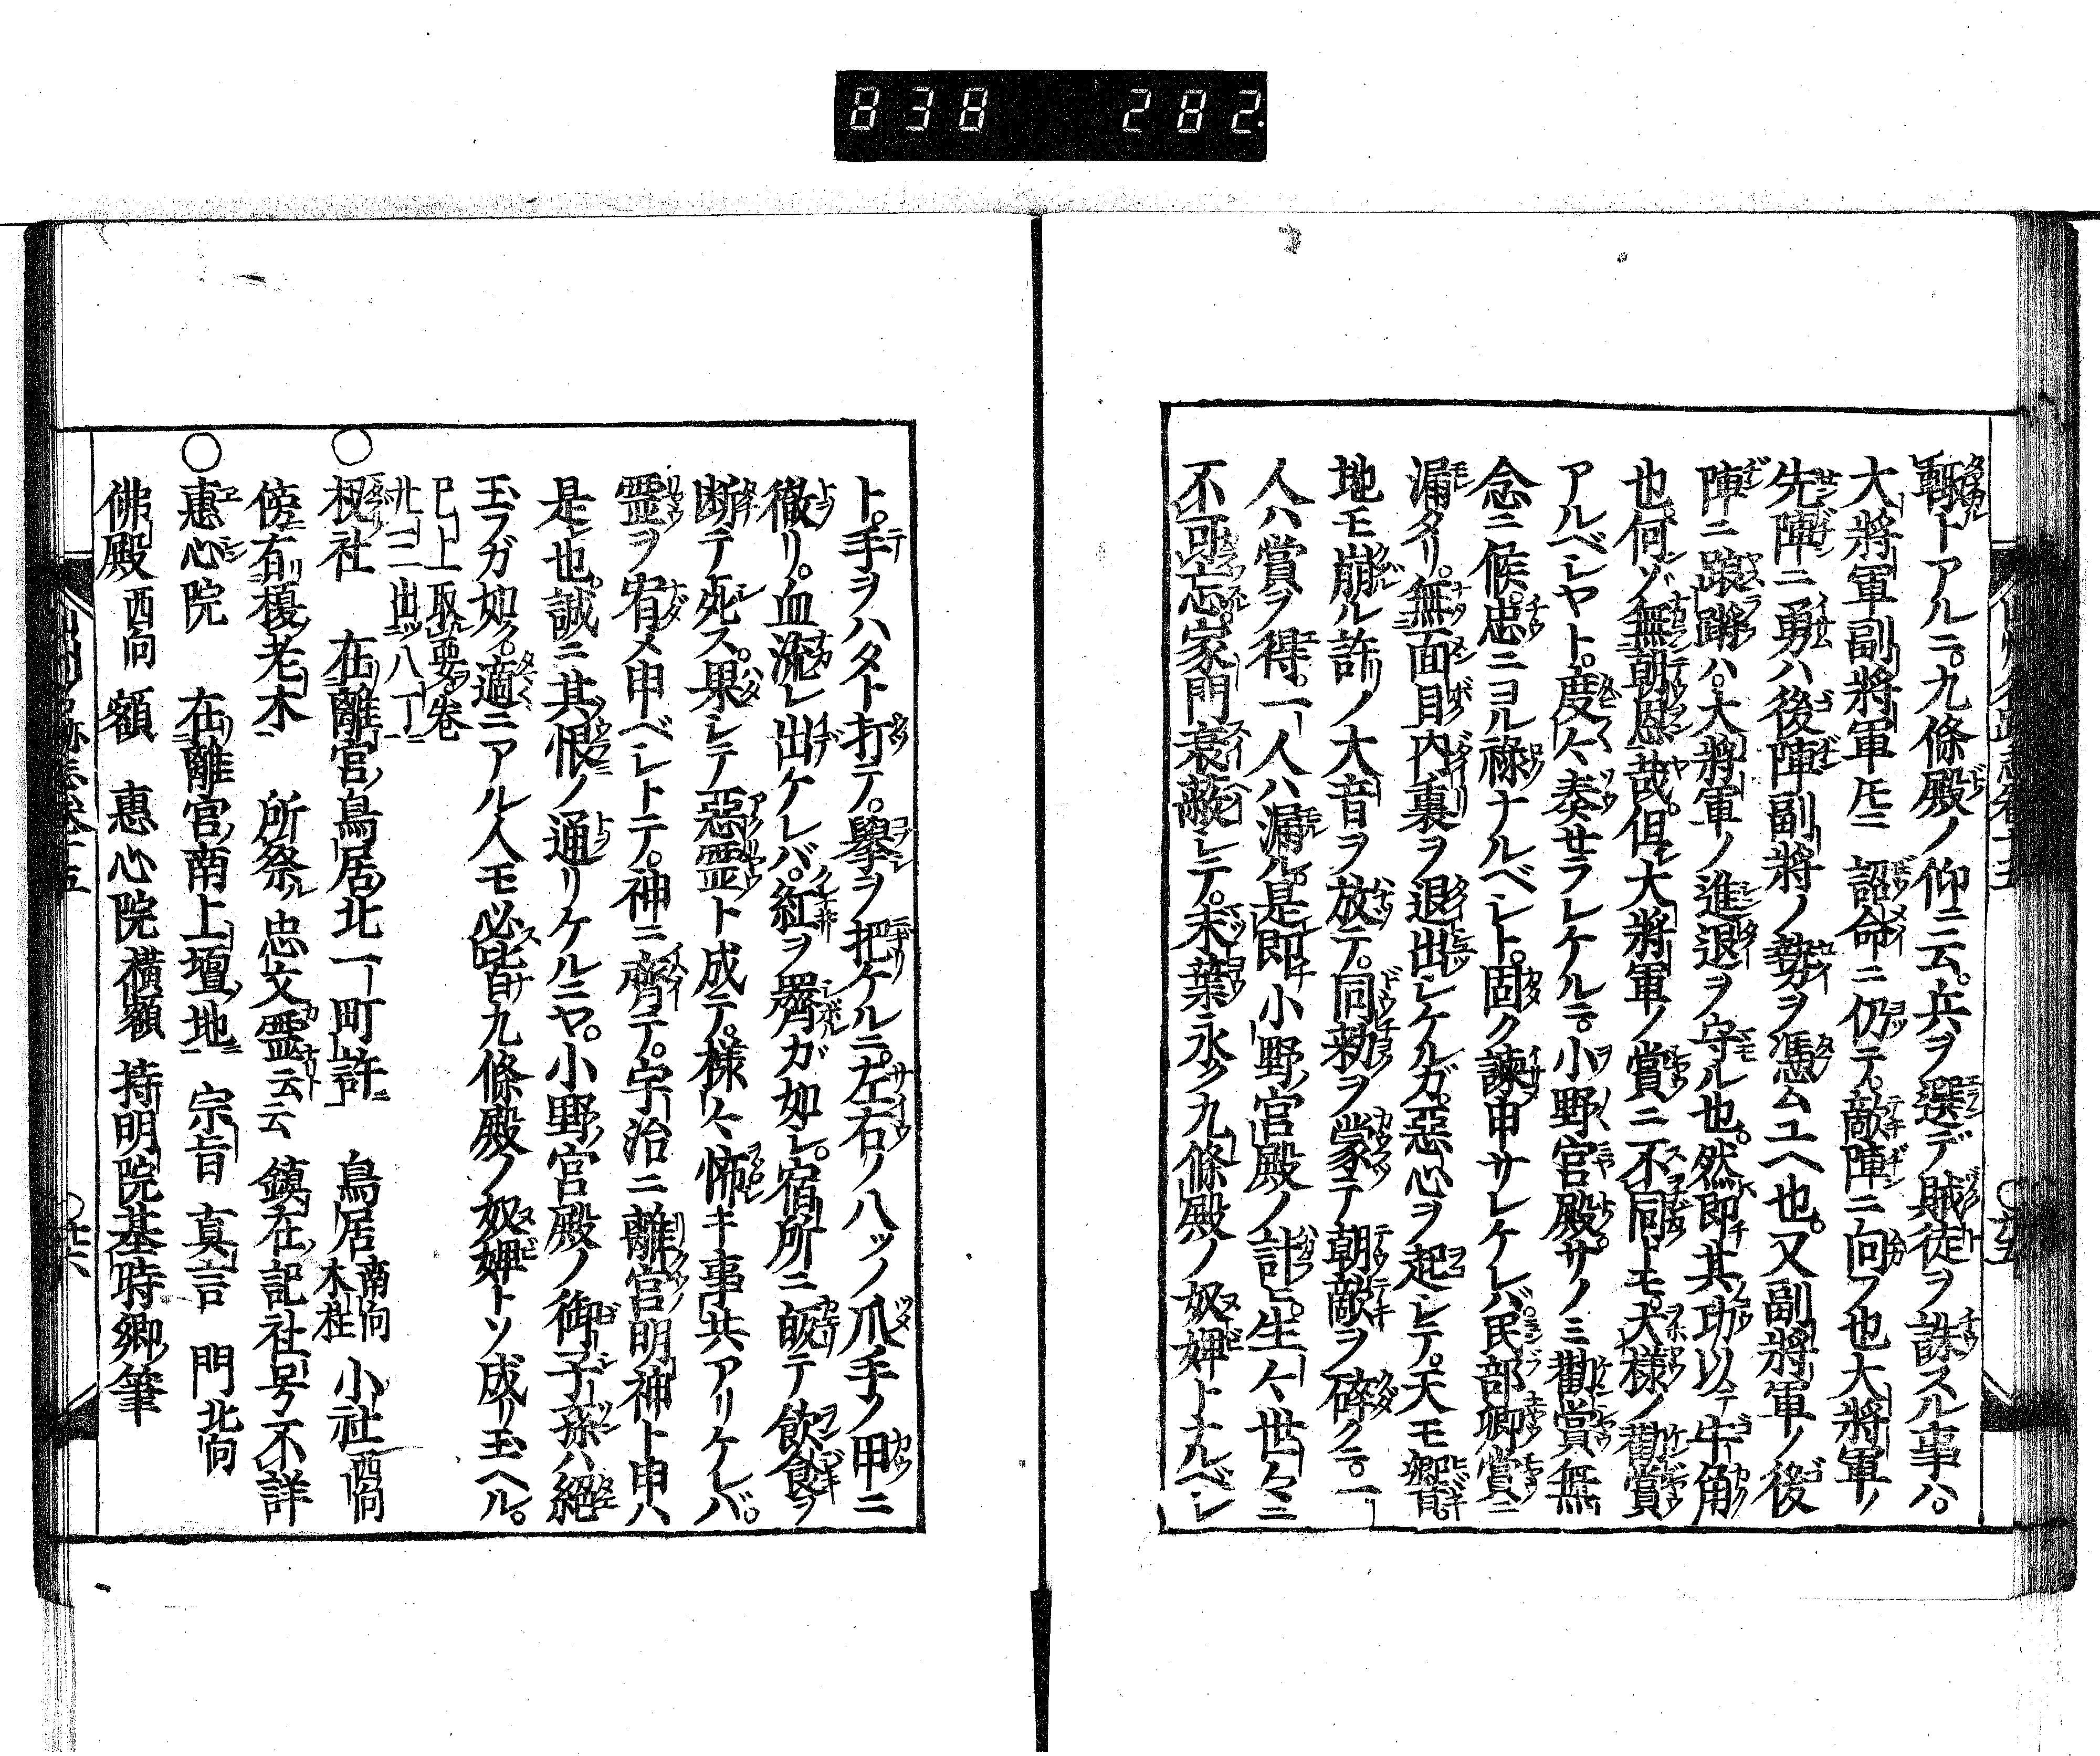 838 282
輙トアルニ。九條殿ノ仰ニ云。兵ヲ選デ賊徒ヲ誅スル事ハ。
大將軍副將軍𪜈ニ詔命ニ仍テ。敵陣ニ向フ也大將軍ノ
先陣ニ勇ハ後陣副將ノ勢ヲ憑ムユヘ也。又副將軍ノ後
陣ニ踉蹡ハ。大將軍ノ進退ヲ守ル也。然即其功以テ牛角
也。何ゾ無朝恩哉。但大將軍ノ賞ニ不同トモ。大樣ノ勸賞
アルベシヤト。度々奏セラレケルニ。小野宮殿サノミ勸賞無
念ニ候。忠ニヨル祿ナルベシト。固ク諫申サレケレバ。民部卿賞ニ
漏タリ。無面目内裏ヲ退出シケルガ。惡心ヲ起シテ。天モ響。
地モ崩ル許リノ大音ヲ放テ。同勅ヲ蒙テ朝敵ヲ碎クニ。一
人ハ賞ヲ得。一人ハ漏ル。是即小野宮殿ノ計ヒ。生々世々ニ
不可忘。家門衰敝シテ。末葉永ク九條殿ノ奴婢トナルベシ
ト。手ヲハタト打テ。擧ヲ把ケルニ。左右ノ八ツノ爪手ノ甲ニ
徹リ。血流レ出ケレバ。紅ヲ𦜝ガ如シ。宿所ニ皈テ飲食ヲ
断テ死ス。果シテ惡霊ト成テ。樣々怖キ事共アリケレバ。
霊ヲ宥メ申ベシトテ。神ニ齊テ。宇治ニ離宮明神ト申ハ
是也。誠ニ其恨ノ通リケルニヤ。小野宮殿ノ御子孫ハ絕
玉フガ如ク。適ニアル人モ必皆九條殿ノ奴婢トソ成リ玉ヘル。
巳上取要ヲ卷
廿三出ツ八丁ニ
○ 杈社 在離宮ノ鳥居北一町許ニ 鳥居南向木柱 小社西向
傍ニ有榎老木 所祭ル忠文霊云云 鎮在ノ記社号不詳
○ 惠心院 在離宮ノ南上壇ノ地ニ 宗旨真言 門北向
佛殿西向 額 惠心院横額 持明院基時卿ノ筆